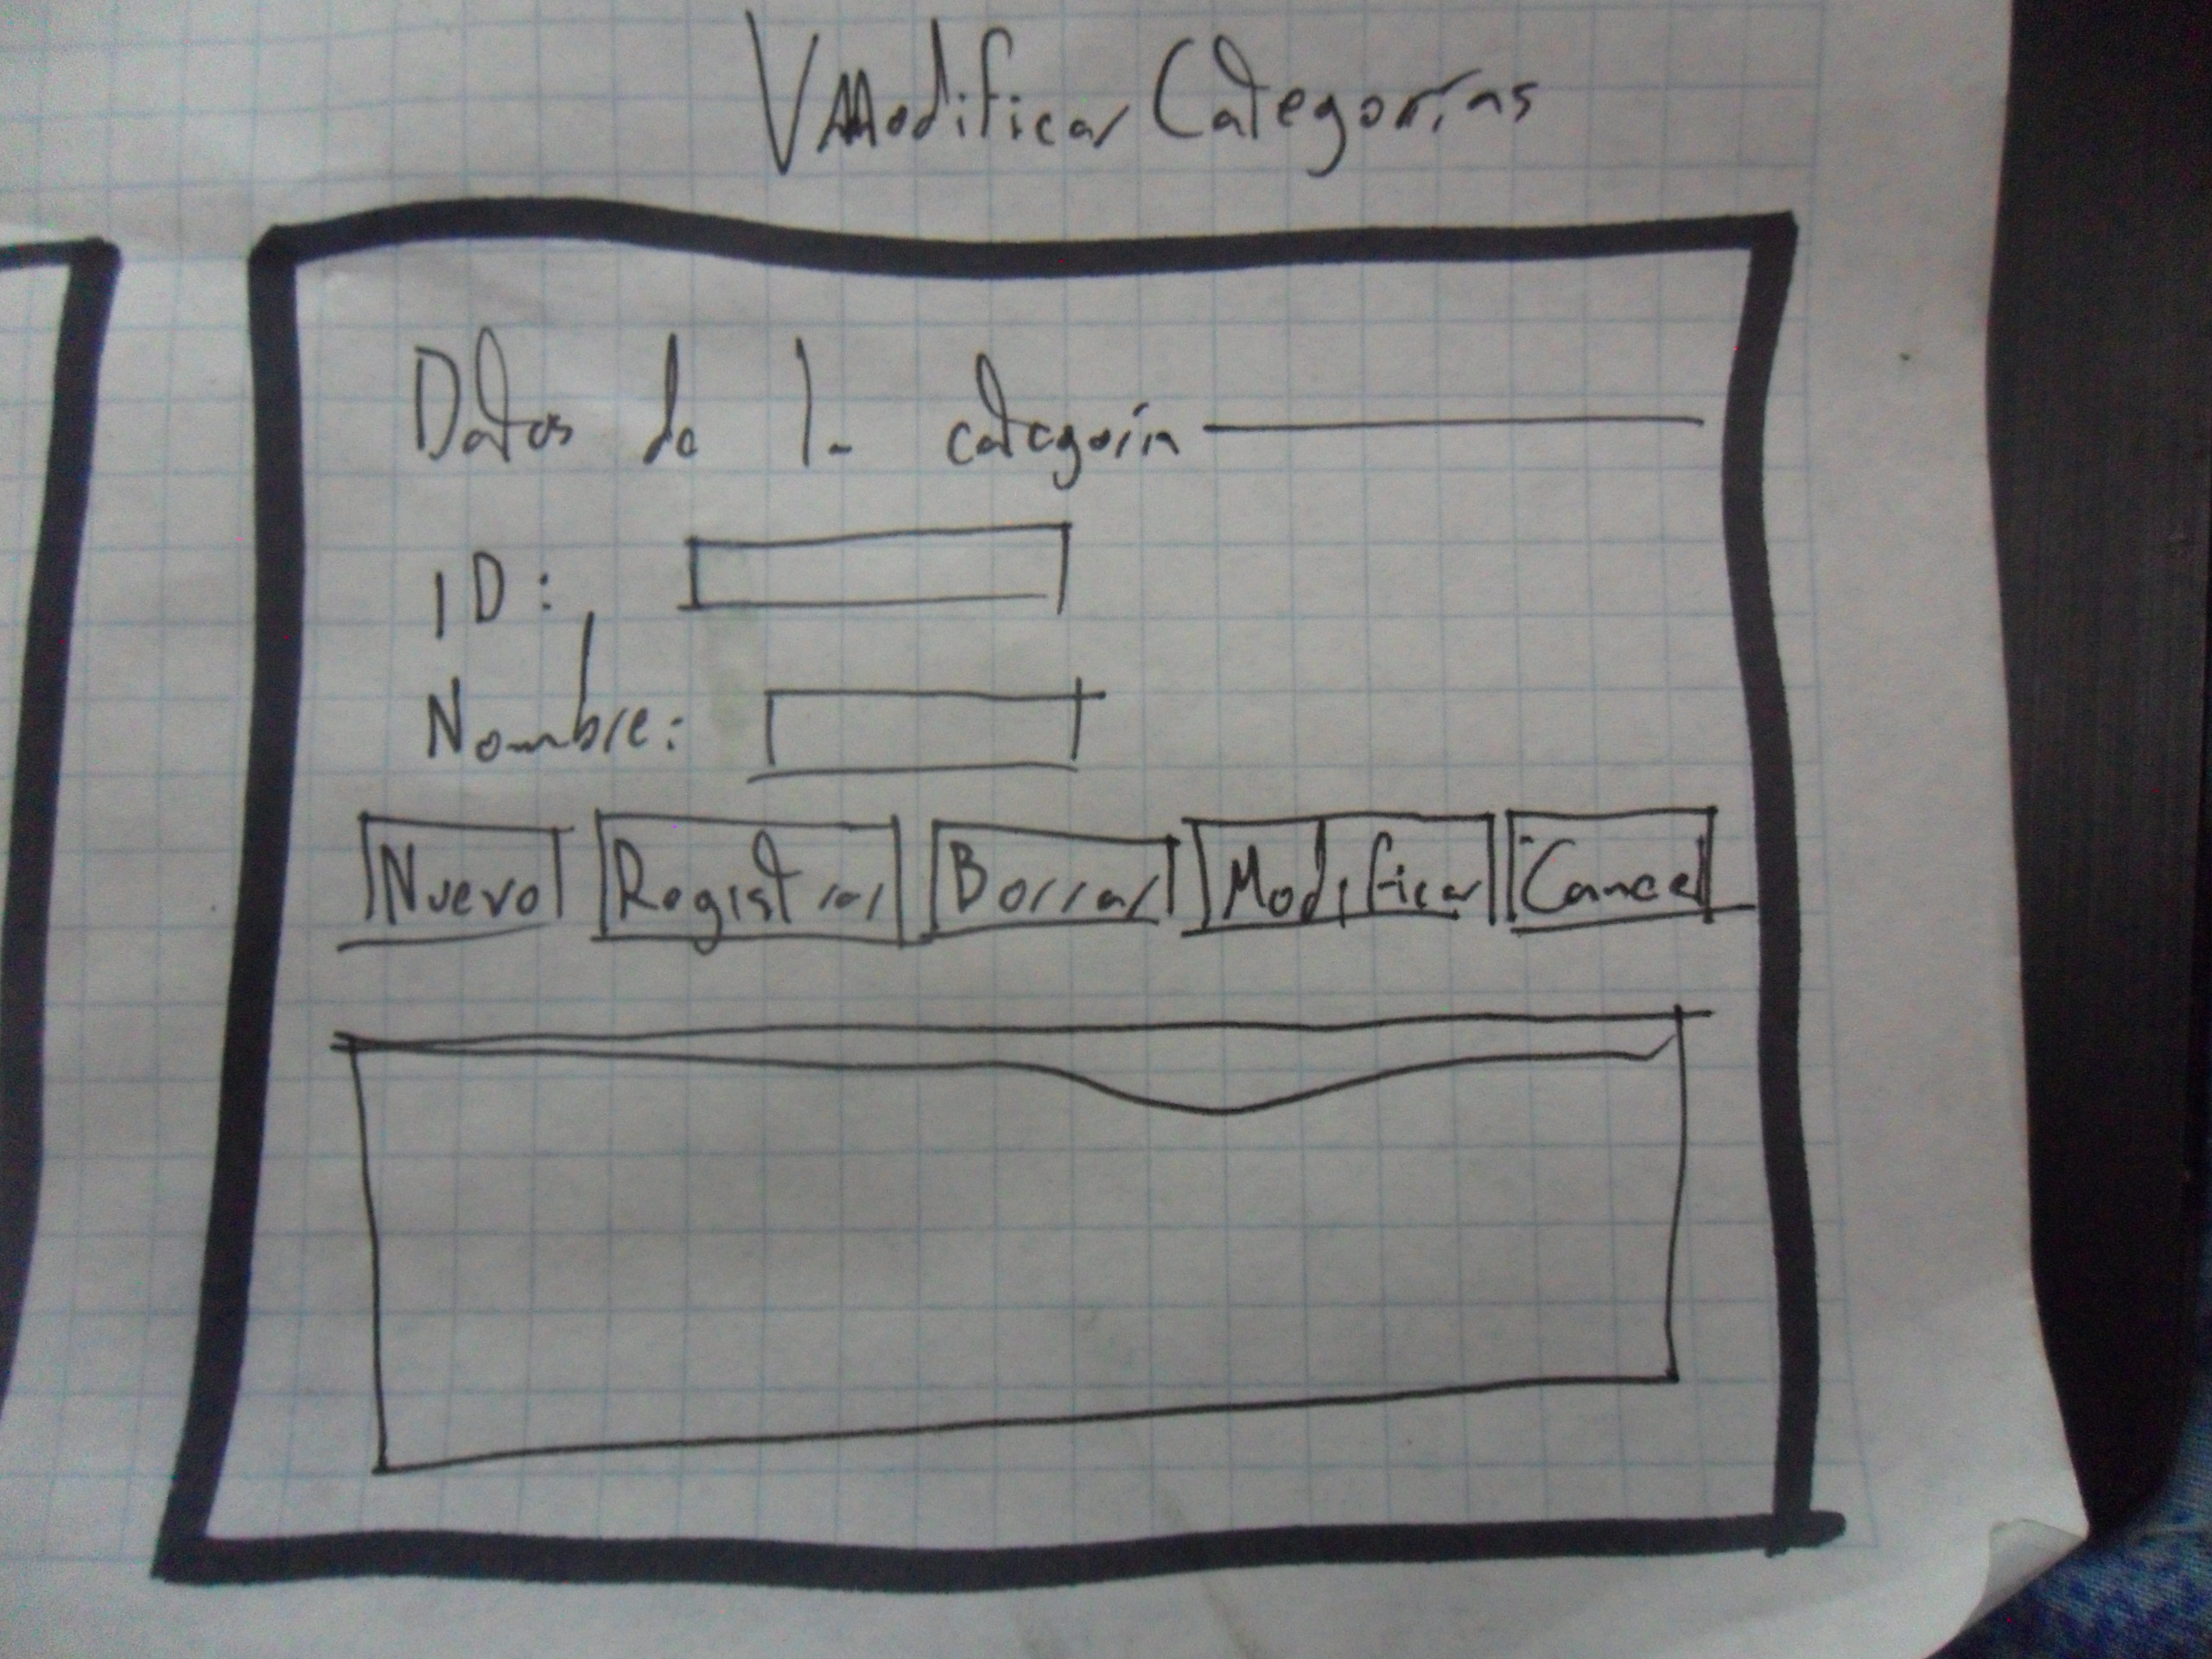 VModificar Categorías
Datos de la categoría
ID:
Nombre:
Nuevo Registrar Borrar Modificar Cancel